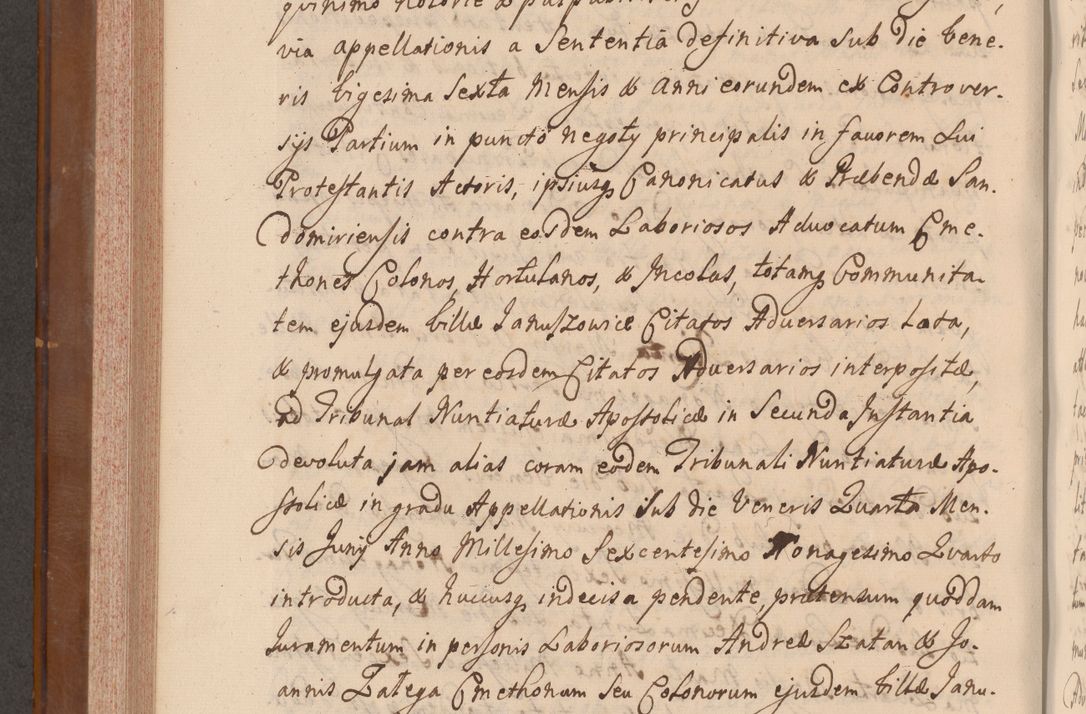 quinimo notorie &
via appellationis a Sententia definitiva sub die Vene-
ris Vigesima Sexta Mensis & Anni eorundem ex Controver-
sijs Partium in puncto negotij principalis in favorem Sui
Protestantis Actoris, ipsiusq Canonicatus & Præbendæ San-
domiriensis contra eosdem Laboriosos Advocatum Cme-
thones Colonos, Hortulanos, & Incolas, totamq Communita-
tem ejusdem Villæ Januszowice Citatos Adversarios Lata,
& promulgata per eosdem Citatos Adversarios interpositæ,
ad Tribunal Nuntiaturæ Apostolicæ in Secunda Instantia
devoluta jam alias coram eodem Tribunali Nuntiaturæ Apo-
stolicæ in gradu Appellationis Sub die Veneris Quarta Men-
sis Junij Anno Millesimo Sexcentesimo Nonagesimo Quarto
introducta, & hucusq indecisa pendente, prætensum quoddam
Juramentum in personis Laboriosorum Andreæ Szatan & Jo-
annis Załega Cmethonum seu Colonorum ejusdem Villæ Janu-